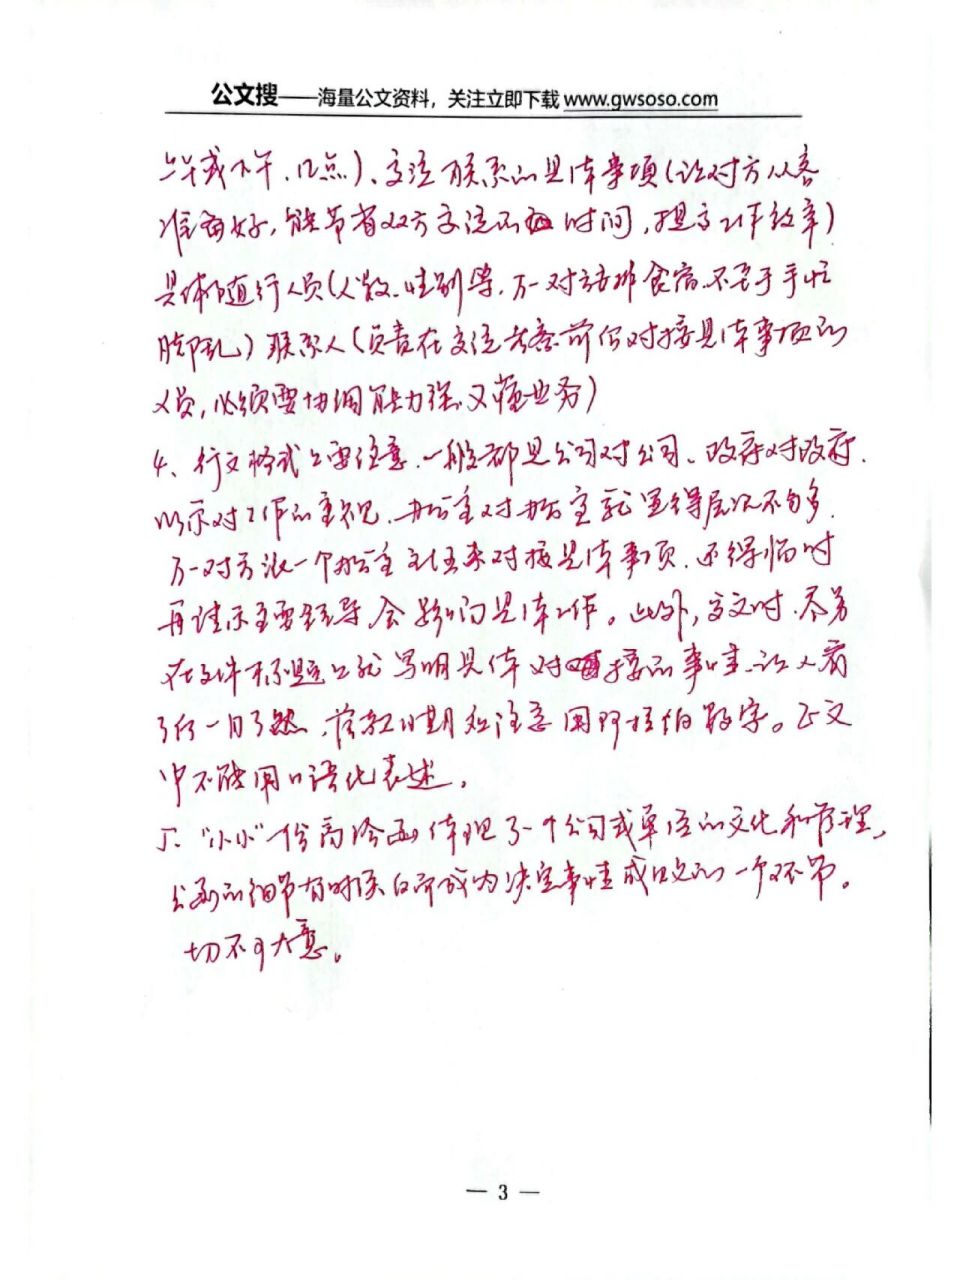 公文搜——海量公文资料，关注立即下载 www.gwsoso.com
上午或下午、几点）、交流联系的具体事项（让对方从容
准备好，能节省双方交流的时间，提高工作效率）
具体随行人员（人数、性别等，万一对方安排食宿，不至于手忙
脚乱）联系人（负责在交流考察前后对接具体事项的
人员，必须要协调能力强、又懂业务）
4、行文格式上要注意，一般都是公司对公司、政府对政府，
以示对工作的重视，办公室对办公室就显得层次不够多，
万一对方派一个办公室主任来对接具体事项，还得临时
再请示主要领导，会影响具体工作。此外，去文时，尽量
在文件标题上就写明具体对接的事情，让人看
了后一目了然，落款日期处注意用阿拉伯数字。正文
中不能用口语化表述。
5、“小小”一份商洽函体现了一个公司或单位的文化和管理，
公函的细节有时候自然成为决定事情成败的一个环节。
切不可大意。
— 3 —